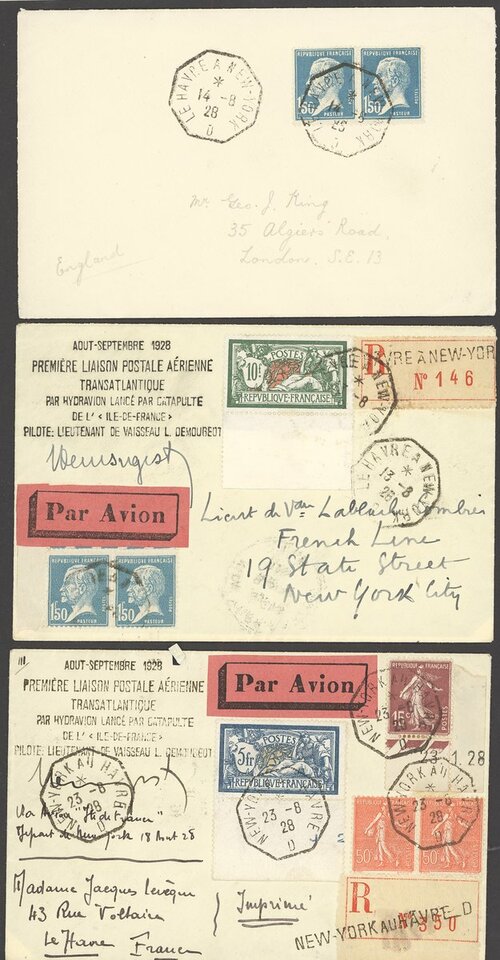 LE HAVRE A NEW-YORK
*
14 -8
28
D
REPUBLIQUE FRANÇAISE
REPUBLIQUE FRANÇAISE
1F50
1F50
POSTES
PASTEUR
PASTEUR
Mr Geo. J. King
35 Algiers Road,
London. S.E. 13
England
AOUT-SEPTEMBRE 1928
PREMIÈRE LIAISON POSTALE AÉRIENNE
TRANSATLANTIQUE
PAR HYDRAVION LANCÉ PAR CATAPULTE
DE L' « ILE-DE-FRANCE »
PILOTE: LIEUTENANT DE VAISSEAU L. DEMOUGEOT
POSTES
10f
REPUBLIQUE FRANÇAISE
R
HAVRE A NEW-YOR
N° 146
LE HAVRE A NEW-YORK
*
13 -8
28
Par Avion
Lieut de Vau
French Line
19 State Street
New York City
REPUBLIQUE FRANÇAISE
REPUBLIQUE FRANÇAISE
1F50
1F50
PASTEUR
PASTEUR
AOUT-SEPTEMBRE 1928
PREMIÈRE LIAISON POSTALE AÉRIENNE
TRANSATLANTIQUE
PAR HYDRAVION LANCÉ PAR CATAPULTE
DE L' « ILE-DE-FRANCE »
PILOTE: LIEUTENANT DE VAISSEAU L. DEMOUGEOT
Par Avion
REPUBLIQUE FRANÇAISE
15c
NEW-YORK AU HAVRE
23 -8
28
D
3.1.28
POSTES
5fr
REPUBLIQUE FRANÇAISE
NEW-YORK AU HAVRE
23 -8
28
D
NEW-YORK AU HAVRE
23 -8
28
D
NEW-YORK AU HAVRE
23 -8
28
D
50c
50c
Via Avion "Ile de France"
Départ de New york 18 Aout 28
Madame Jacques Levêque
43 Rue Voltaire
Le Havre France
Imprimé
R
N° 350
NEW-YORK AU HAVRE D